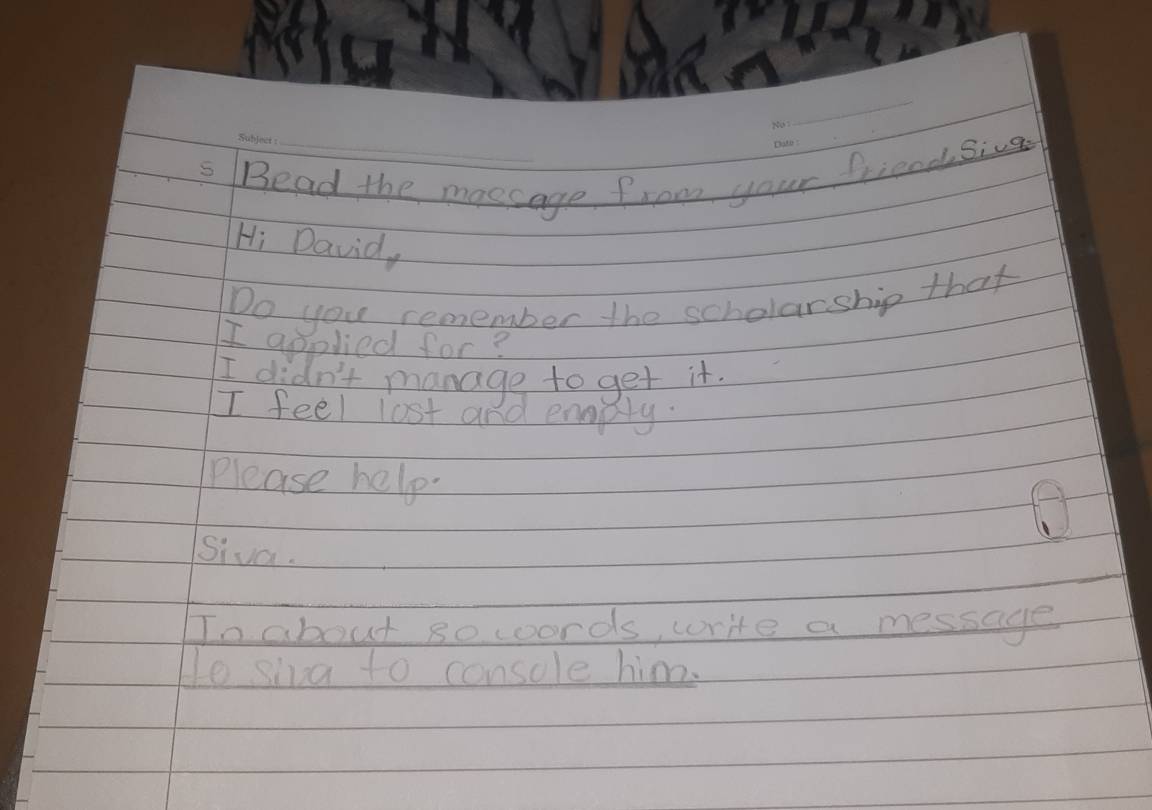 No :
Subject :
Date :
5 Read the maessage from your friend, Siva.
Hi David,
Do you remember the scholarship that
I applied for?
I didn't manage to get it.
I feel lost and empty.
Please help.
Siva.
In about 80 words, write a message
to siva to console him.